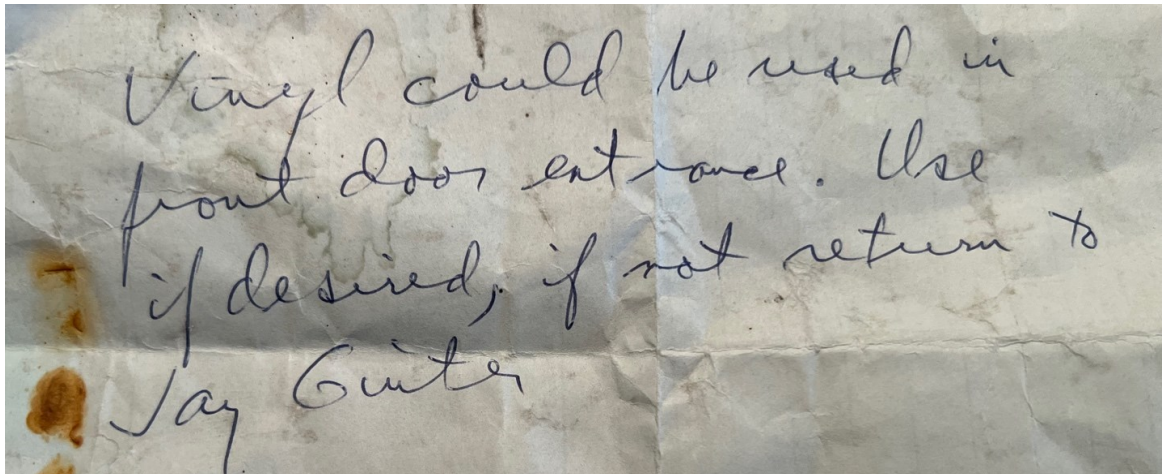 Vinyl could be used in
front door entrance. Use
if desired, if not return to
Jay Ginter